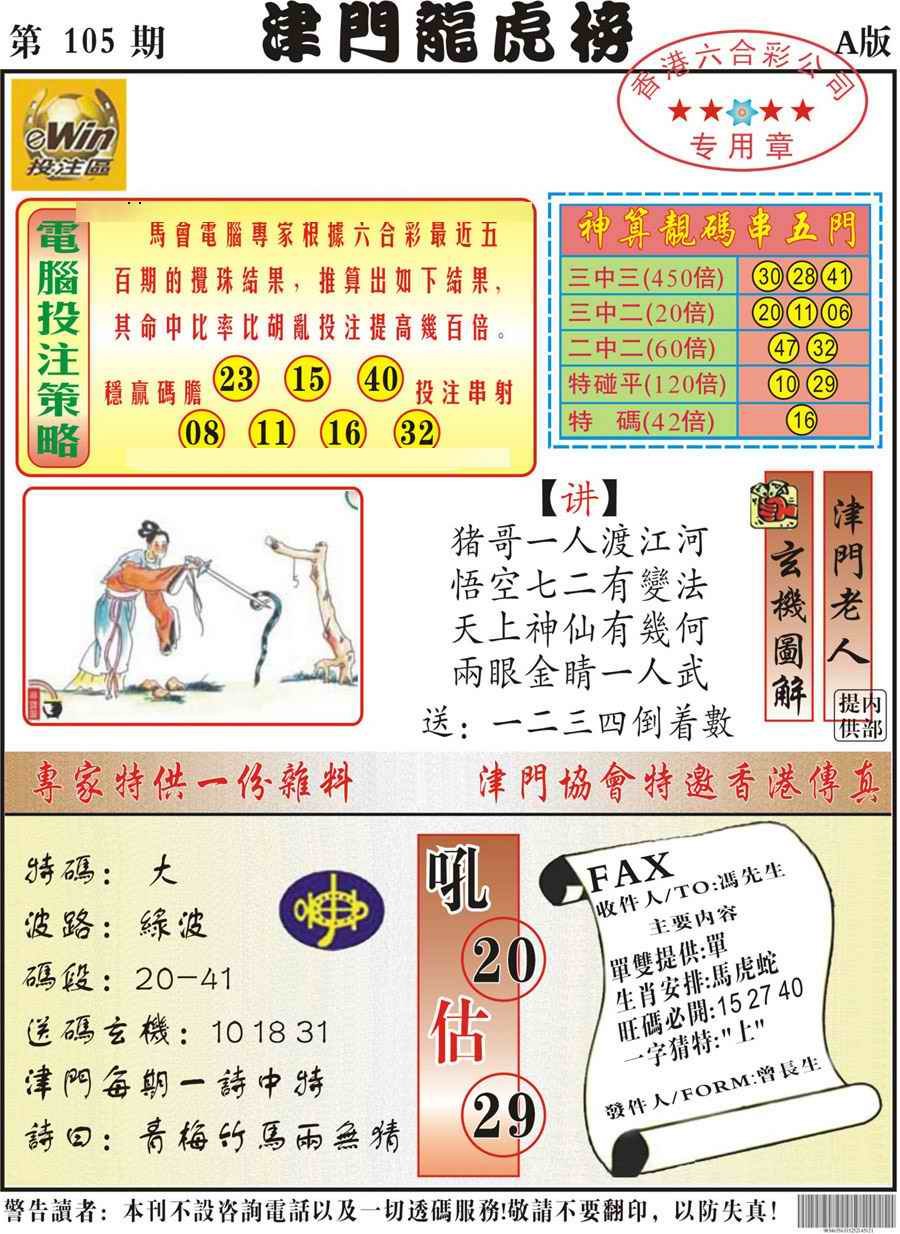 第 105 期
津門龍虎榜
A版
香港六合彩公司
专用章
eWin
投注區
電腦投注策略
馬會電腦專家根據六合彩最近五
百期的攪珠結果，推算出如下結果，
其命中比率比胡亂投注提高幾百倍。
穩贏碼膽 23 15 40 投注串射
08 11 16 32
神算靚碼串五門
三中三(450倍) 30 28 41
三中二(20倍) 20 11 06
二中二(60倍) 47 32
特碰平(120倍) 10 29
特 碼(42倍) 16
【讲】
猪哥一人渡江河
悟空七二有變法
天上神仙有幾何
兩眼金睛一人武
送：一二三四倒着數
玄機圖解
津門老人
内部
提供
專家特供一份雜料
津門協會特邀香港傳真
特碼： 大
波路： 綠波
碼段： 20－41
送碼玄機： 10 18 31
津門每期一詩中特
詩曰： 青梅竹馬兩無猜
吼
20
估
29
FAX
收件人/TO:馮先生
主要内容
單雙提供:單
生肖安排:馬虎蛇
旺碼必開:15 27 40
一字猜特:"上"
發件人/FORM:曾長生
警告讀者：本刊不設咨詢電話以及一切透碼服務!敬請不要翻印，以防失真!